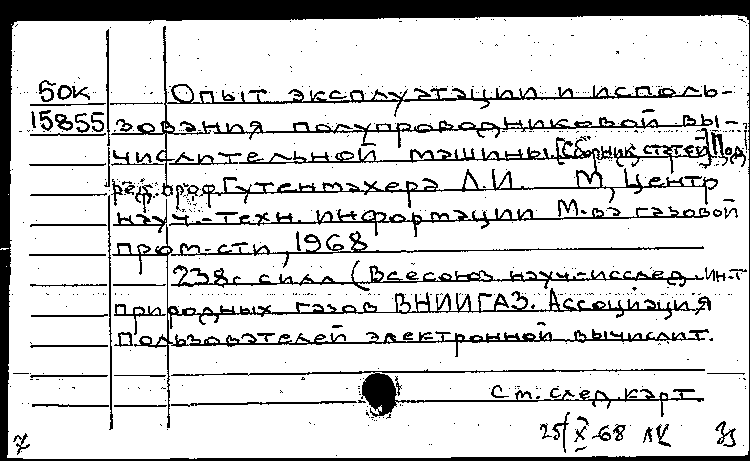 БОК Опыт эксплуатации и исполь-
15855 зования полупроводниковой вы-
числительной машины. [Сборник статей] Под
ред. проф. Гутенмахера Л.И. М, Центр
науч.-техн. информации М-ва газовой
пром-сти, 1968
238с. с илл (Всесоюз науч-исслед. ин-т
природных газов ВНИИГАЗ. Ассоциация
пользователей электронной вычислит.
См. след. карт.
25/X-68 ЛК